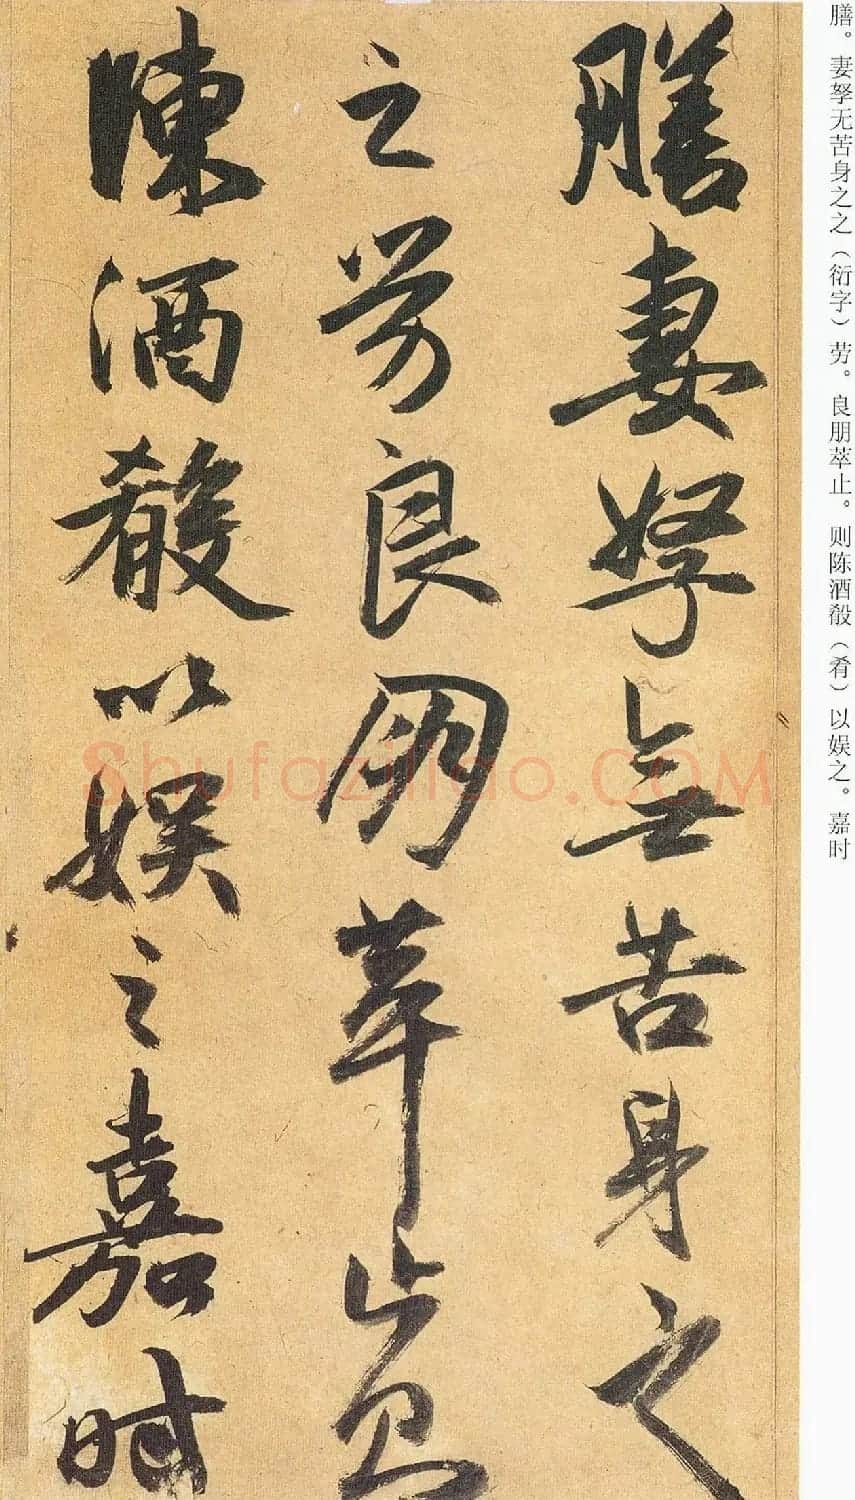 膳。妻孥无苦身之之（衍字）劳。良朋萃止。则陈酒殽（肴）以娱之。嘉时
膳妻孥無苦身之
之劳良朋萃止则
陳酒殽以娱之嘉時
Shufaziliao.COM